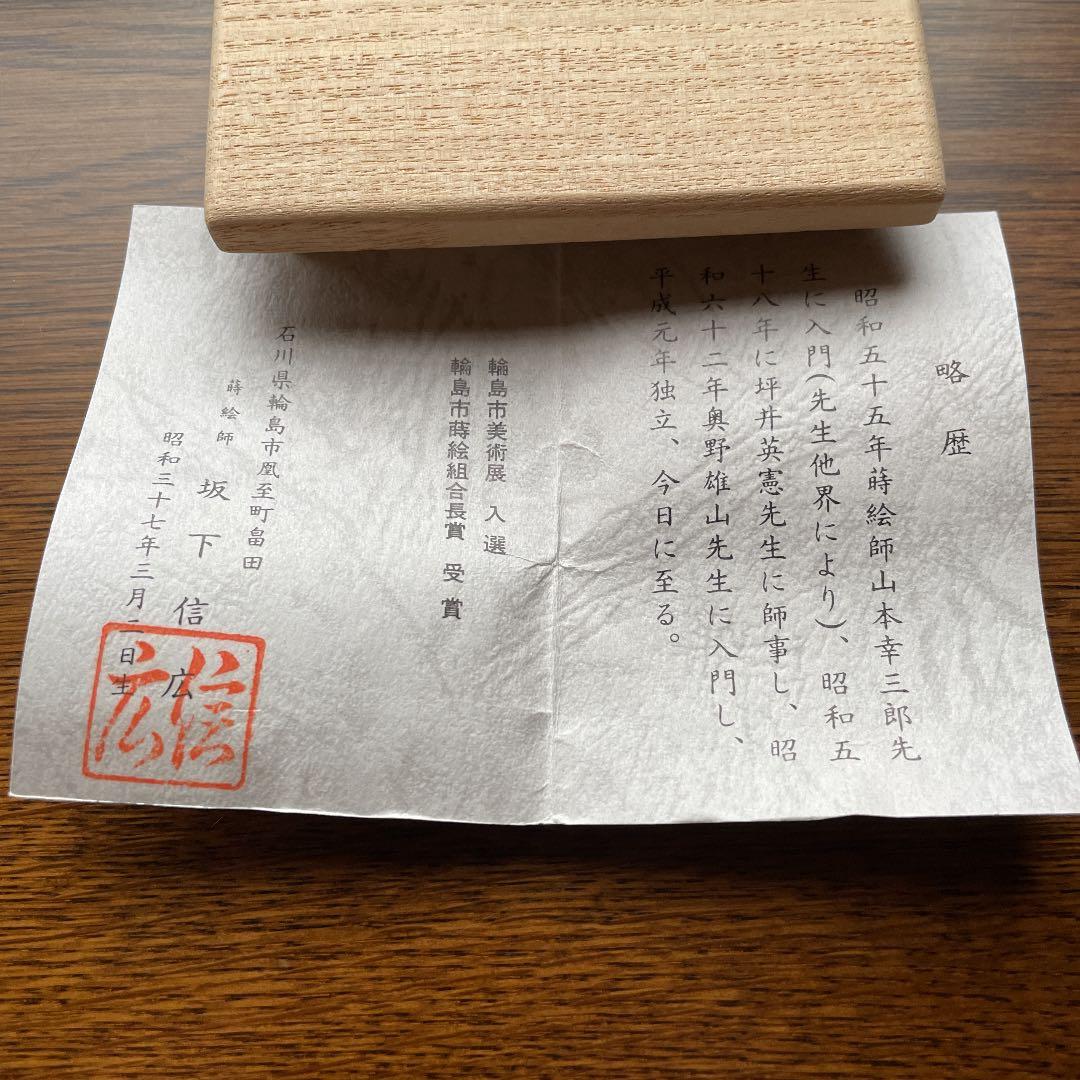 略歴
昭和五十五年蒔絵師山本幸三郎先
生に入門(先生他界により)、昭和五
十八年に坪井英憲先生に師事し、昭
和六十二年奥野雄山先生に入門し、
平成元年独立、今日に至る。
輪島市美術展 入選
輪島市蒔絵組合長賞 受賞
石川県輪島市鳳至町畠田
蒔絵師 坂下信広
昭和三十七年三月二日生
信広